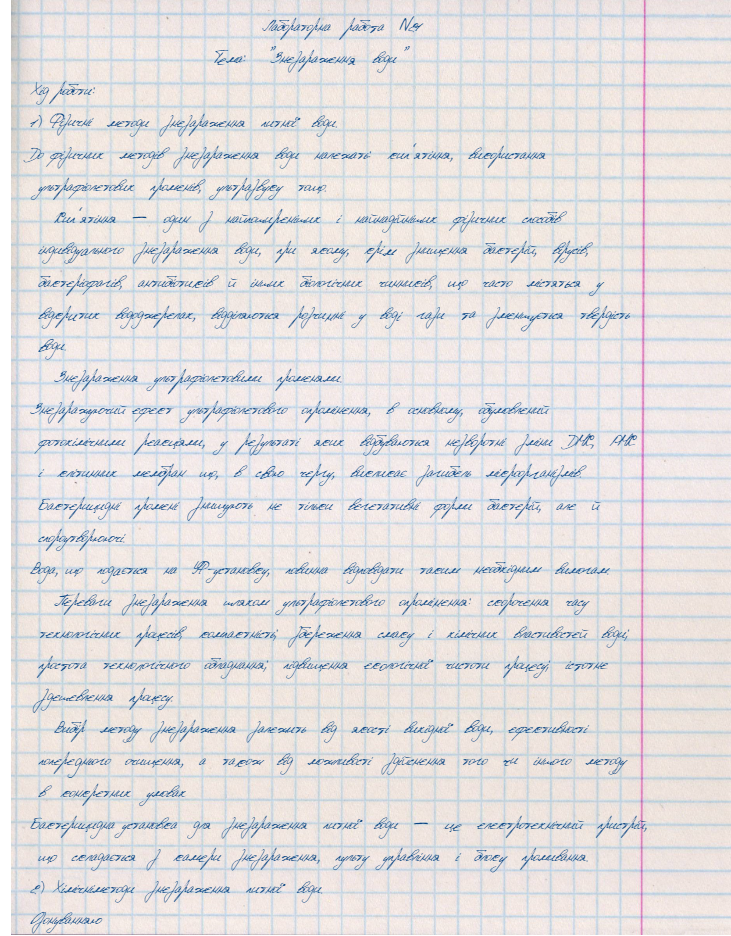 Лабораторна работа №4
Тема: "Знезараження води"
Хід роботи:
1) Фізичні методи знезараження питної води.
До фізичних методів знезараження води належать кип'ятіння, використання
ультрафіолетових променів, ультразвуку тощо.
Кип'ятіння — один з найпоширеніших і найнадійніших фізичних способів
індивідуального знезараження води, при якому, крім знищення бактерій, вірусів,
бактеріофагів, антибіотиків й інших біологічних чинників, що часто містяться у
відкритих вододжерелах, видаляються розчинні у воді гази та зменшується твердість
води.
Знезараження ультрафіолетовими променями.
Знезаражуючий ефект ультрафіолетового опромінення, в основному, обумовлений
фотохімічними реакціями, у результаті яких відбуваються незворотні зміни ДНК, РНК
і клітинних мембран що, в свою чергу, викликає загибель мікроорганізмів.
Бактерицидні промені знищують не тільки вегетативні форми бактерій, але й
спороутворюючі.
Вода, що подається на УФ-установку, повинна відповідати таким необхідним вимогам.
Переваги знезараження шляхом ультрафіолетового опромінення: скорочення часу
технологічних процесів, компактність; збереження смаку і хімічних властивостей води;
простота технологічного обладнання; підвищення екологічної чистоти процесу; істотне
здешевлення процесу.
Вибір методу знезараження залежить від якості вихідної води, ефективності
попереднього очищення, а також від можливісті здійснення того чи іншого методу
в конкретних умовах
Бактерицидна установка для знезараження питної води — це електротехнічний пристрій,
що складається з камери знезараження, пульту управління і блоку промивання.
2) Хімічніметоди знезараження питної води
Озонуванняю